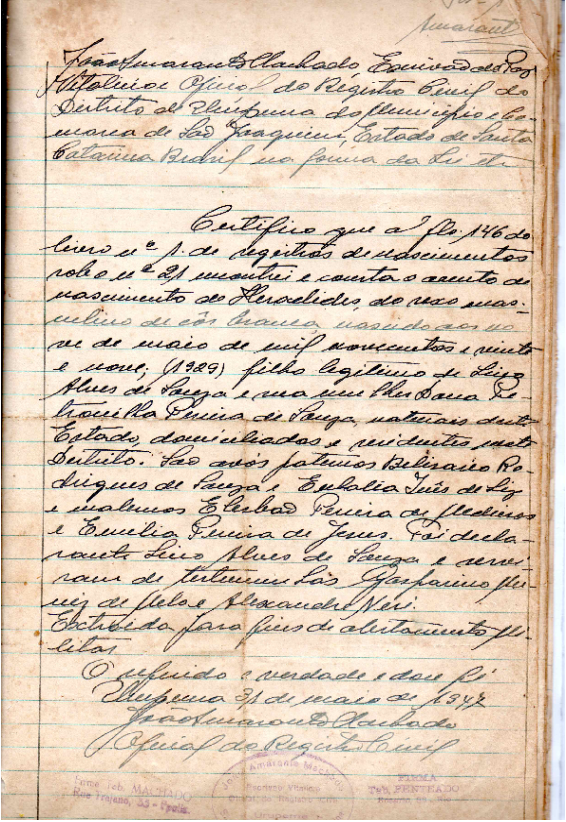 Amarant
João Amarante Machado, Escrivão de Paz
Vitalicio e Oficial do Registro Civil do
Distrito de Urupema do Municipio e Co-
marca de São Joaquim, Estado de Santa
Catarina Brasil na forma da Lei etc
Certifico que a fls 146 do
livro nº 1. de registros de nascimentos
sob o nº 21 encontrei e consta o assento de
nascimento de Heraclides, do sexo mas-
culino de côr branca, nascido aos no
ve de maio de mil novecentos e vinte
e nove; (1929) filho legítimo de Lino
Alves de Souza e sua mulher Dona Pe-
tronilha Pereira de Souza, naturais deste
Estado, domiciliados e residentes neste
Distrito. São avós paternos Belisario Ro-
drigues de Souza e Eulalia Inês de Liz
e maternos Elesbão Pereira de Medeiros
e Emilia Pereira de Jesus. Foi decla-
rante Lino Alves de Souza e servi-
ram de testemunhas Gasparino Mu-
niz de Melo e Alexandre Neri.
Extraida para fins de alistamento Mi-
litar
O referido é verdade e dou fé
Urupema 31 de maio de 1947
João Amarante Machado
Oficial do Registro Civil
João Amarante Machado
Escrivão Vitalicio
Urupema
Tab. MACHADO
Rua Trajano, 33 - Fpolis.
FIRMA
Tab. PENTEADO